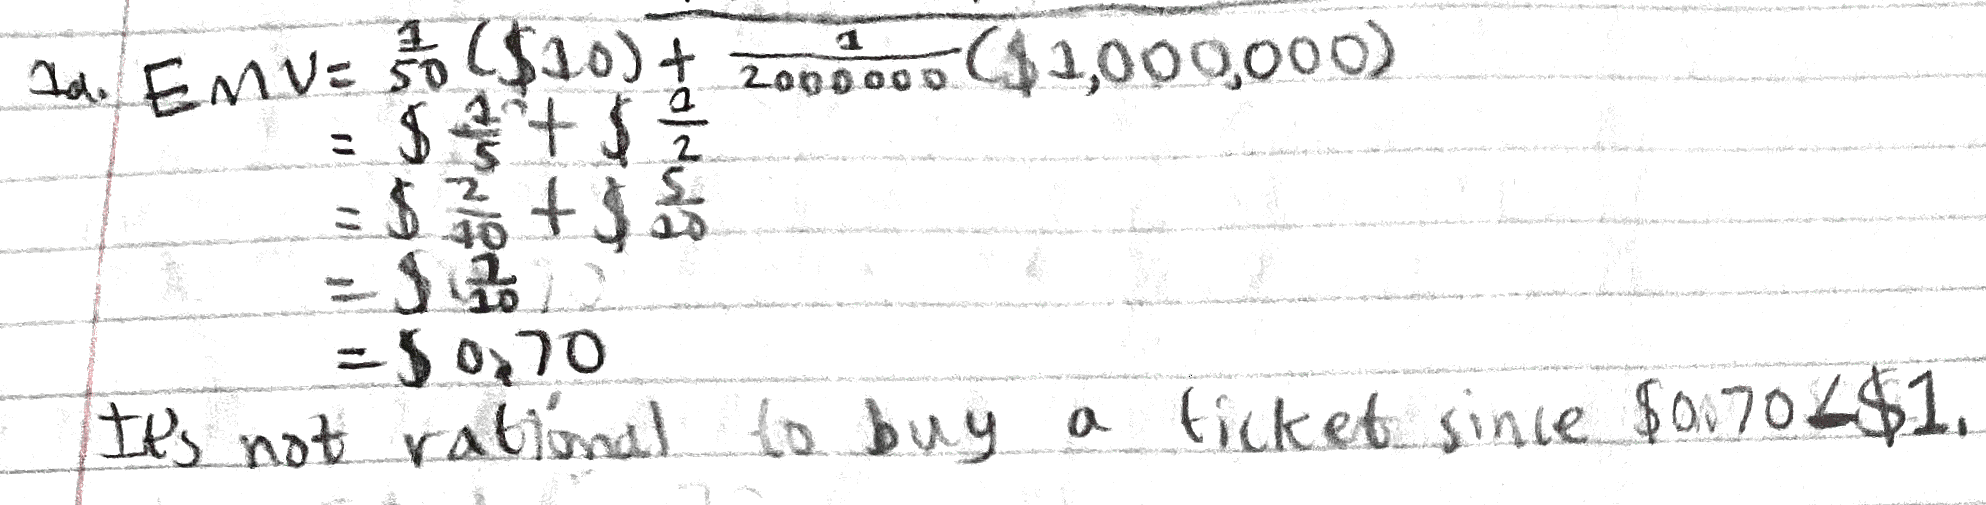 1a. EMV = 1/50 ($10) + 1/2000000 ($1,000,000)
= $ 1/5 + $ 1/2
= $ 2/10 + $ 5/10
= $ 7/10
= $0.70
It's not rational to buy a ticket since $0.70 < $1.